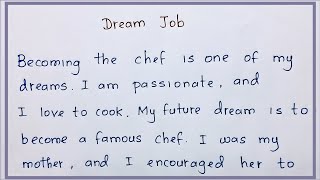 Dream Job
Becoming the chef is one of my
dreams. I am passionate, and
I love to cook. My future dream is to
become a famous chef. I was my
mother, and I encouraged her to